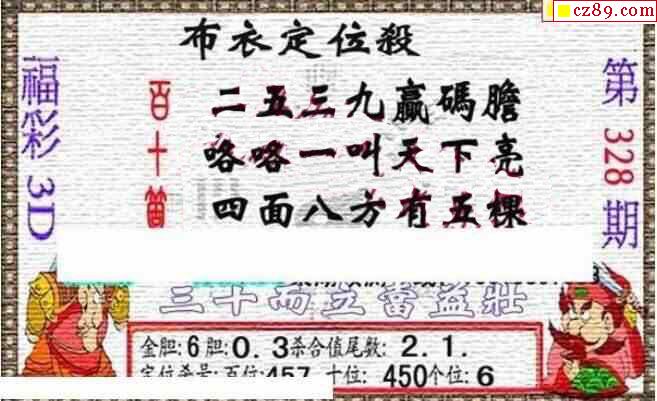 cz89.com
布衣定位殺
福彩3D
第328期
百 二五三九贏碼膽
十 咯咯一叫天下亮
四面八方有五棵
三十而立當益壯
金胆:6胆:0.3杀合值尾数:2.1.
定位杀号:百位:457 十位:450个位:6